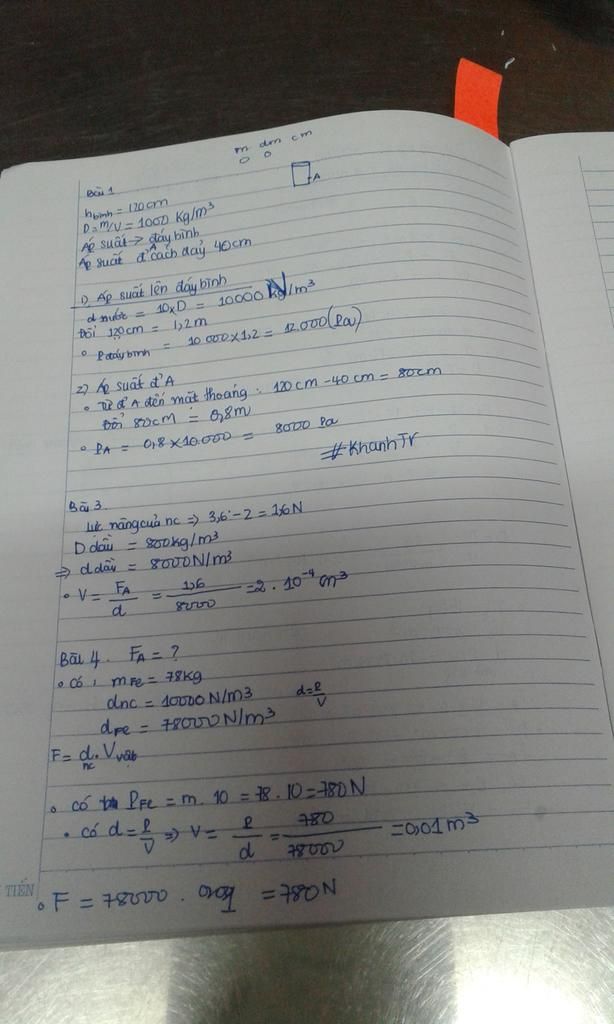 m dm cm
0 0
Bài 1
A
h bình = 120cm
D = m/V = 1000 kg/m³
Áp suất → đáy bình
Áp suất đ' A cách đáy 40cm
1) Áp suất lên đáy bình
d nước = 10×D = 10000 N/m³
Đổi 120cm = 1,2m
• P đáy bình = 10 000×1,2 = 12.000 (Pa)
2) Áp suất đ' A
• Từ đ' A đến mặt thoáng : 120cm - 40cm = 80cm
Đổi 80cm = 0,8m
• PA = 0,8×10.000 = 8000 Pa
#KhanhTr
Bài 3.
Lực nâng của nc => 3,6 - 2 = 1,6N
D dầu = 800kg/m³
=> d dầu = 8000N/m³
• V = FA/d = 1,6/8000 = 2 . 10⁻⁴ m³
Bài 4. FA = ?
• có, mFe = 78kg
dnc = 10000 N/m3 d=P/V
dFe = 78000N/m³
F = dnc . V vật
• có PFe = m . 10 = 78 . 10 = 780N
• có d = P/V => V = P/d = 780/78000 = 0,01m³
TIẾN
• F = 78000 . 0,01 = 780N